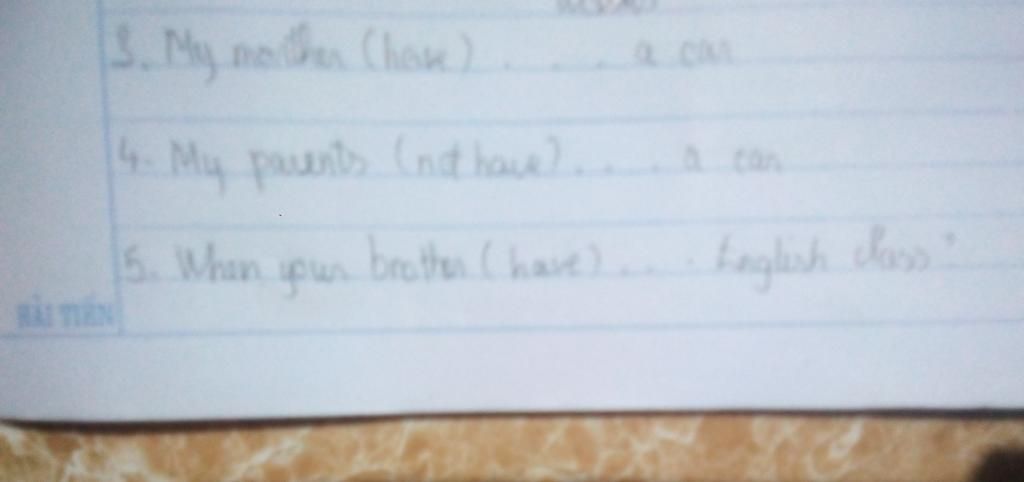 3. My mother (have) . . . . a car
4. My parents (not have) . . . . a car
5. When your brother (have) . . . . English class?
HẢI TIẾN